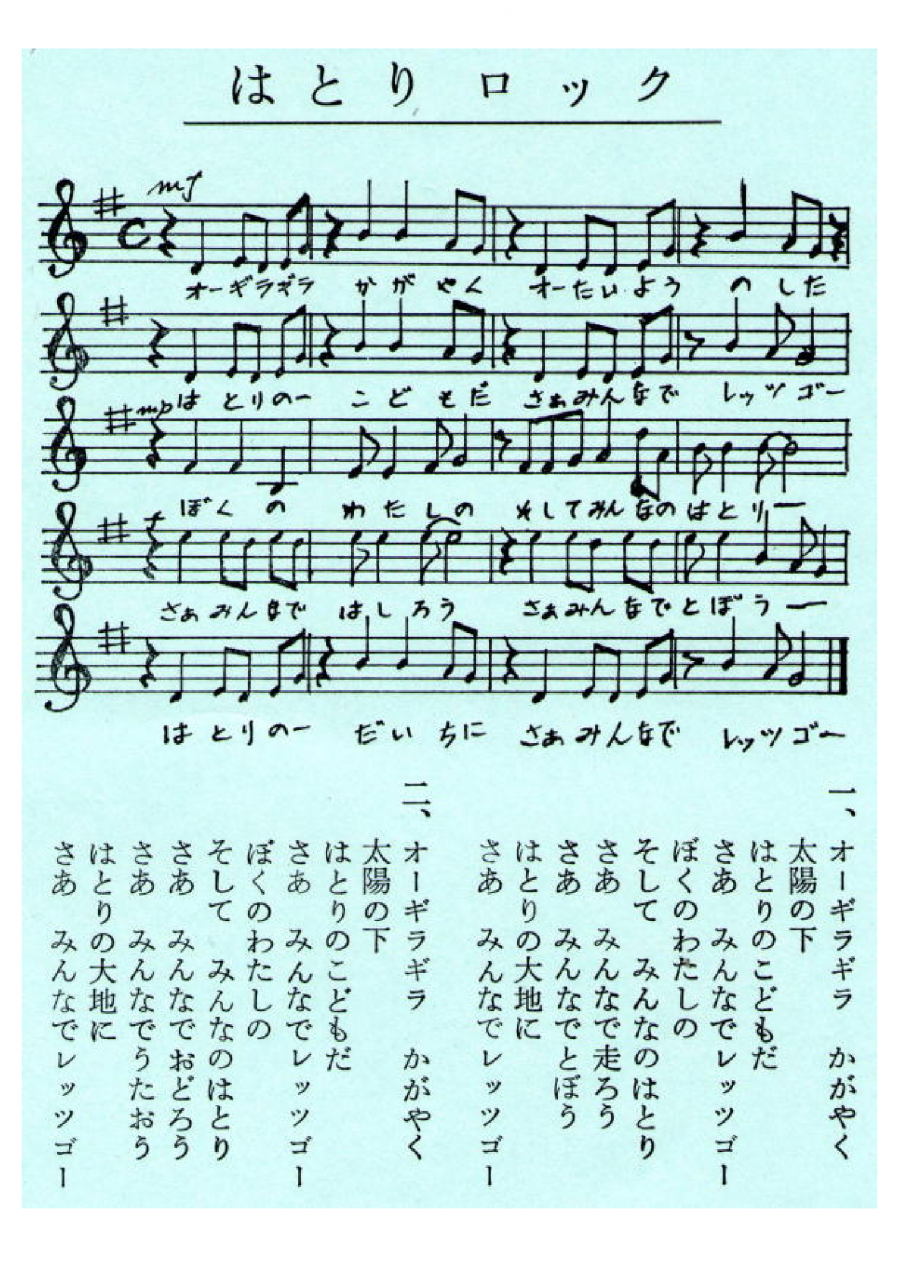 はとり ロック
mf
オーギラギラ かがやく オーたいよう のした
はとりのー こどもだ さぁみんなで レッツゴー
mp
ぼくの わたしの そしてみんなのはとりー
f
さぁみんなで はしろう さぁみんなでとぼうー
はとりのー だいちに さぁみんなで レッツゴー
一、オーギラギラ かがやく
太陽の下
はとりのこどもだ
さあ みんなでレッツゴー
ぼくのわたしの
そして みんなのはとり
さあ みんなで走ろう
さあ みんなでとぼう
はとりの大地に
さあ みんなでレッツゴー
二、オーギラギラ かがやく
太陽の下
はとりのこどもだ
さあ みんなでレッツゴー
ぼくのわたしの
そして みんなのはとり
さあ みんなでおどろう
さあ みんなでうたおう
はとりの大地に
さあ みんなでレッツゴー